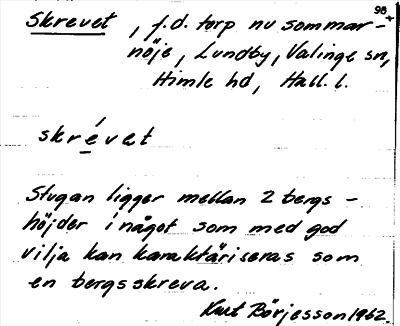 98
Skrevet, f.d. torp nu sommar-
nöje, Lundby, Valinge sn,
Himle hd, Hall. l.
skrévet
Stugan ligger mellan 2 bergs-
höjder i något som med god
vilja kan karaktäriseras som
en bergsskreva.
Kurt Börjesson 1962